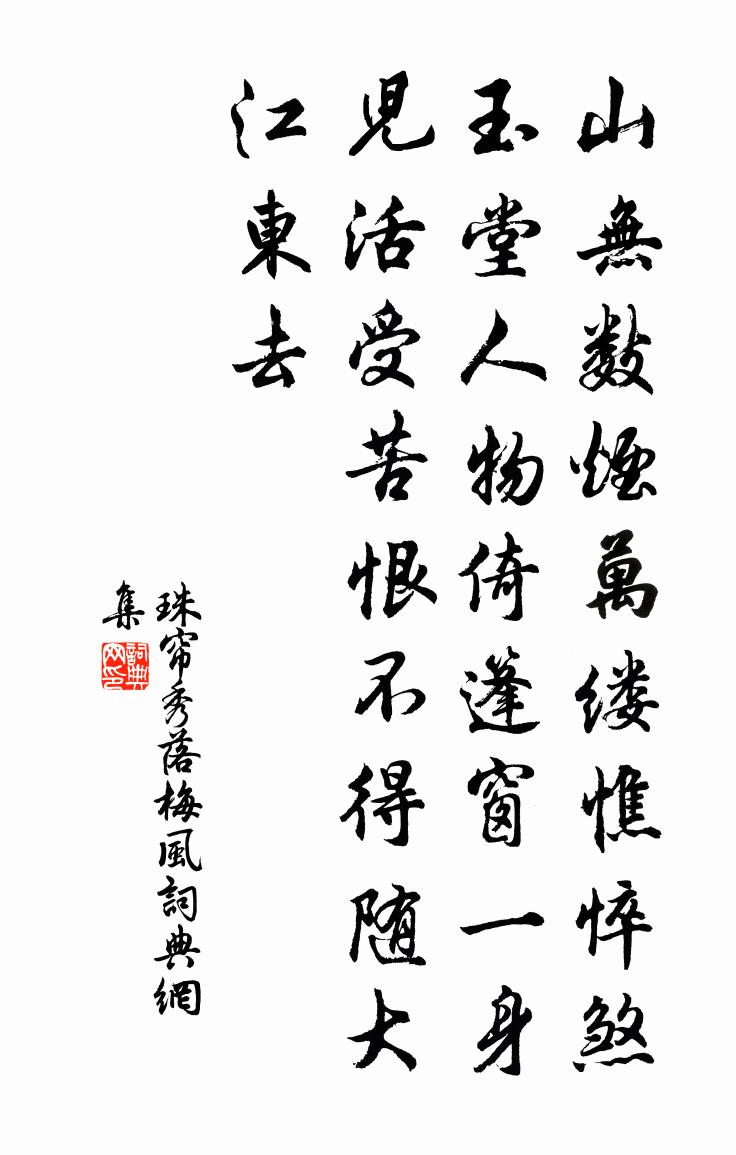 山無数煙萬缕憔悴煞
玉堂人物倚蓬窗一身
児活受苦恨不得随大
江東去
珠帘秀落梅風詞典網
集
詞典网印